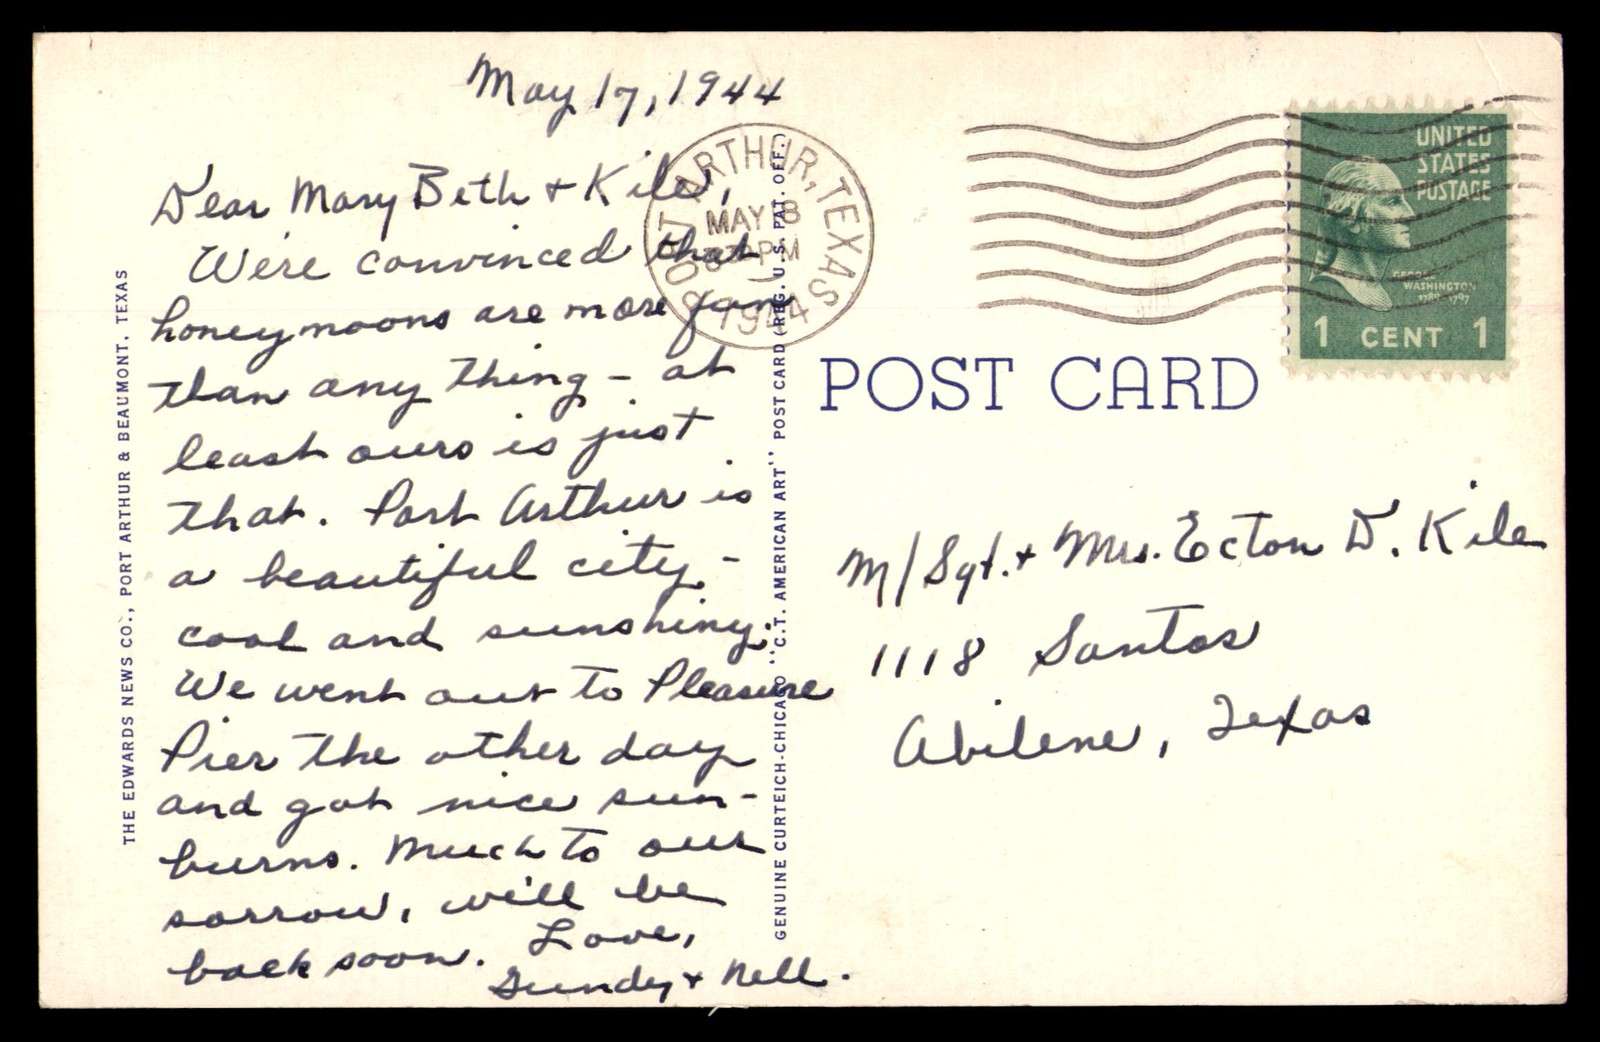 May 17, 1944
Dear Mary Beth & Kile,
We're convinced that
honeymoons are more fun
than any thing - at
least ours is just
that. Port Arthur is
a beautiful city -
cool and sunshiny.
We went out to Pleasure
Pier the other day
and got nice sun-
burns. Much to our
sorrow, we'll be
back soon. Love,
Gundy & Nell.
THE EDWARDS NEWS CO., PORT ARTHUR & BEAUMONT, TEXAS
GENUINE CURTEICH-CHICAGO "C.T. AMERICAN ART" POST CARD (REG. U.S. PAT. OFF.)
PORT ARTHUR, TEXAS
MAY 18
PM
1944
UNITED
STATES
POSTAGE
GEORGE
WASHINGTON
1789-1797
1 CENT 1
POST CARD
M/Sgt. & Mrs. Ecton D. Kile
1118 Santos
Abilene, Texas